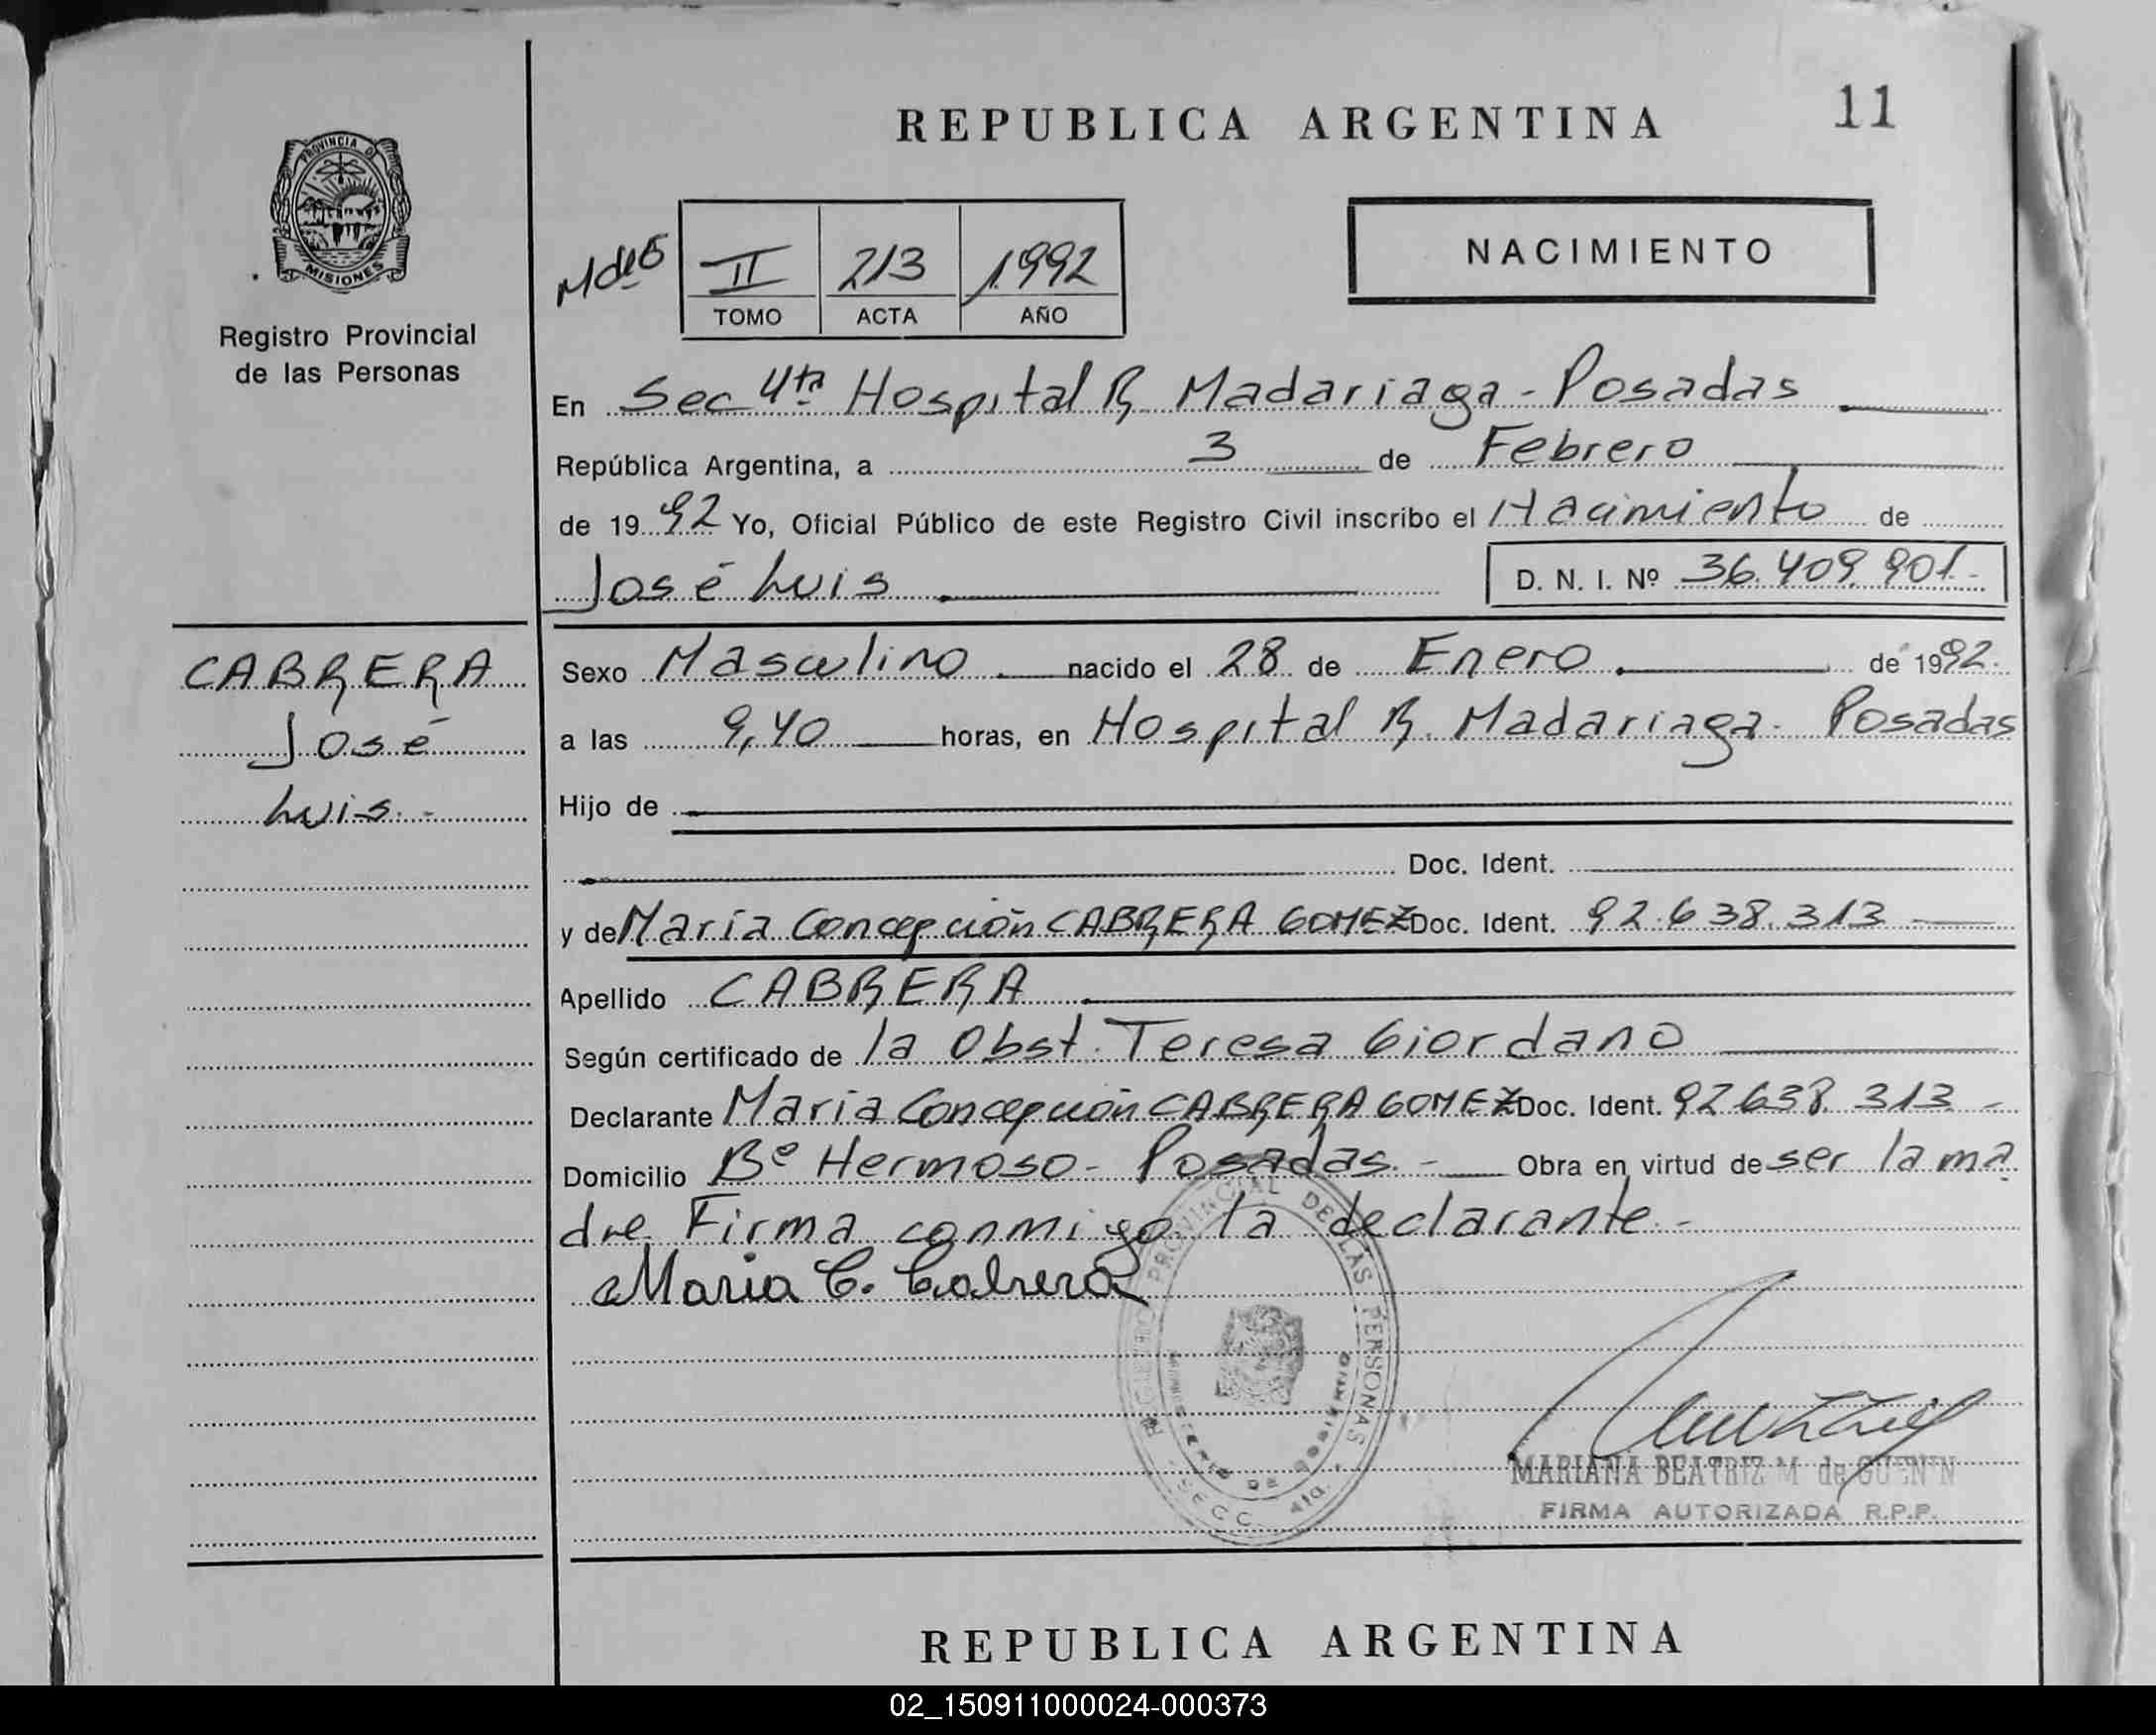 REPUBLICA ARGENTINA
11
PROVINCIA D
MISIONES
Registro Provincial
de las Personas
II 213 1992
TOMO ACTA AÑO
NACIMIENTO
En Sec 4ta Hospital R Madariaga - Posadas
República Argentina, a 3 de Febrero
de 1992 Yo, Oficial Público de este Registro Civil inscribo el Nacimiento de
José Luis D. N. I. Nº 36.409.901.-
CABRERA
José
Luis.-
Sexo Masculino nacido el 28 de Enero de 1992.
a las 9,40 horas, en Hospital R. Madariaga - Posadas
Hijo de
Doc. Ident.
y de María Concepción CABRERA GOMEZ Doc. Ident. 92.638.313
Apellido CABRERA
Según certificado de la Obst. Teresa Giordano
Declarante María Concepción CABRERA GOMEZ Doc. Ident. 92.638.313 -
Domicilio Bº Hermoso - Posadas. - Obra en virtud de ser la ma
dre Firma conmigo la declarante.-
Maria C. Cabrera
REGISTRO PROVINCIAL DE LAS PERSONAS
MINISTERIO DE GOBIERNO
SECC. 4ta.
MARIANA BEATRIZ M de GUENIN
FIRMA AUTORIZADA R.P.P.
REPUBLICA ARGENTINA
02_150911000024-000373